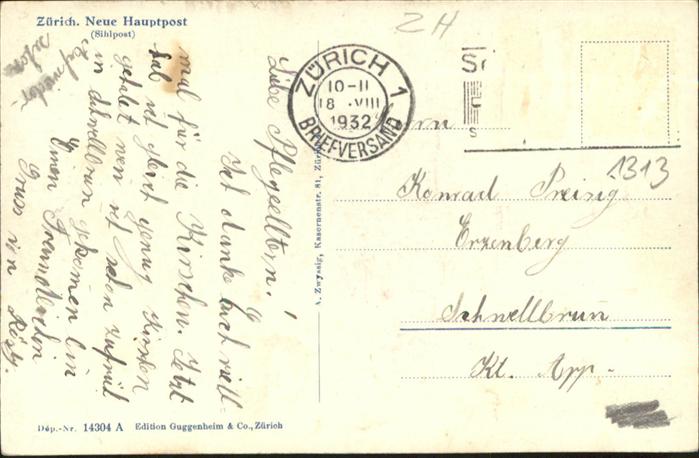 Zürich. Neue Hauptpost
(Sihlpost)
Liebe Pflegeeltern!
Ich danke Euch viel-
mal für die Kirschen. Jetzt
hab ich genug Kirschen
gehabt wen ich schon zufrül
in schnellbrun gekomen bin
Einen Freundlichen
Gruss von Rösy.
A. Zwyssig, Kasernenstr. 81, Zürich
ZÜRICH 1
10-11
18. VIII
1932
BRIEFVERSAND
ZH
1313
Konrad Preisig
Erzenberg
Schnellbrun
Kt. App.
Dép.-Nr. 14304 A Edition Guggenheim & Co., Zürich